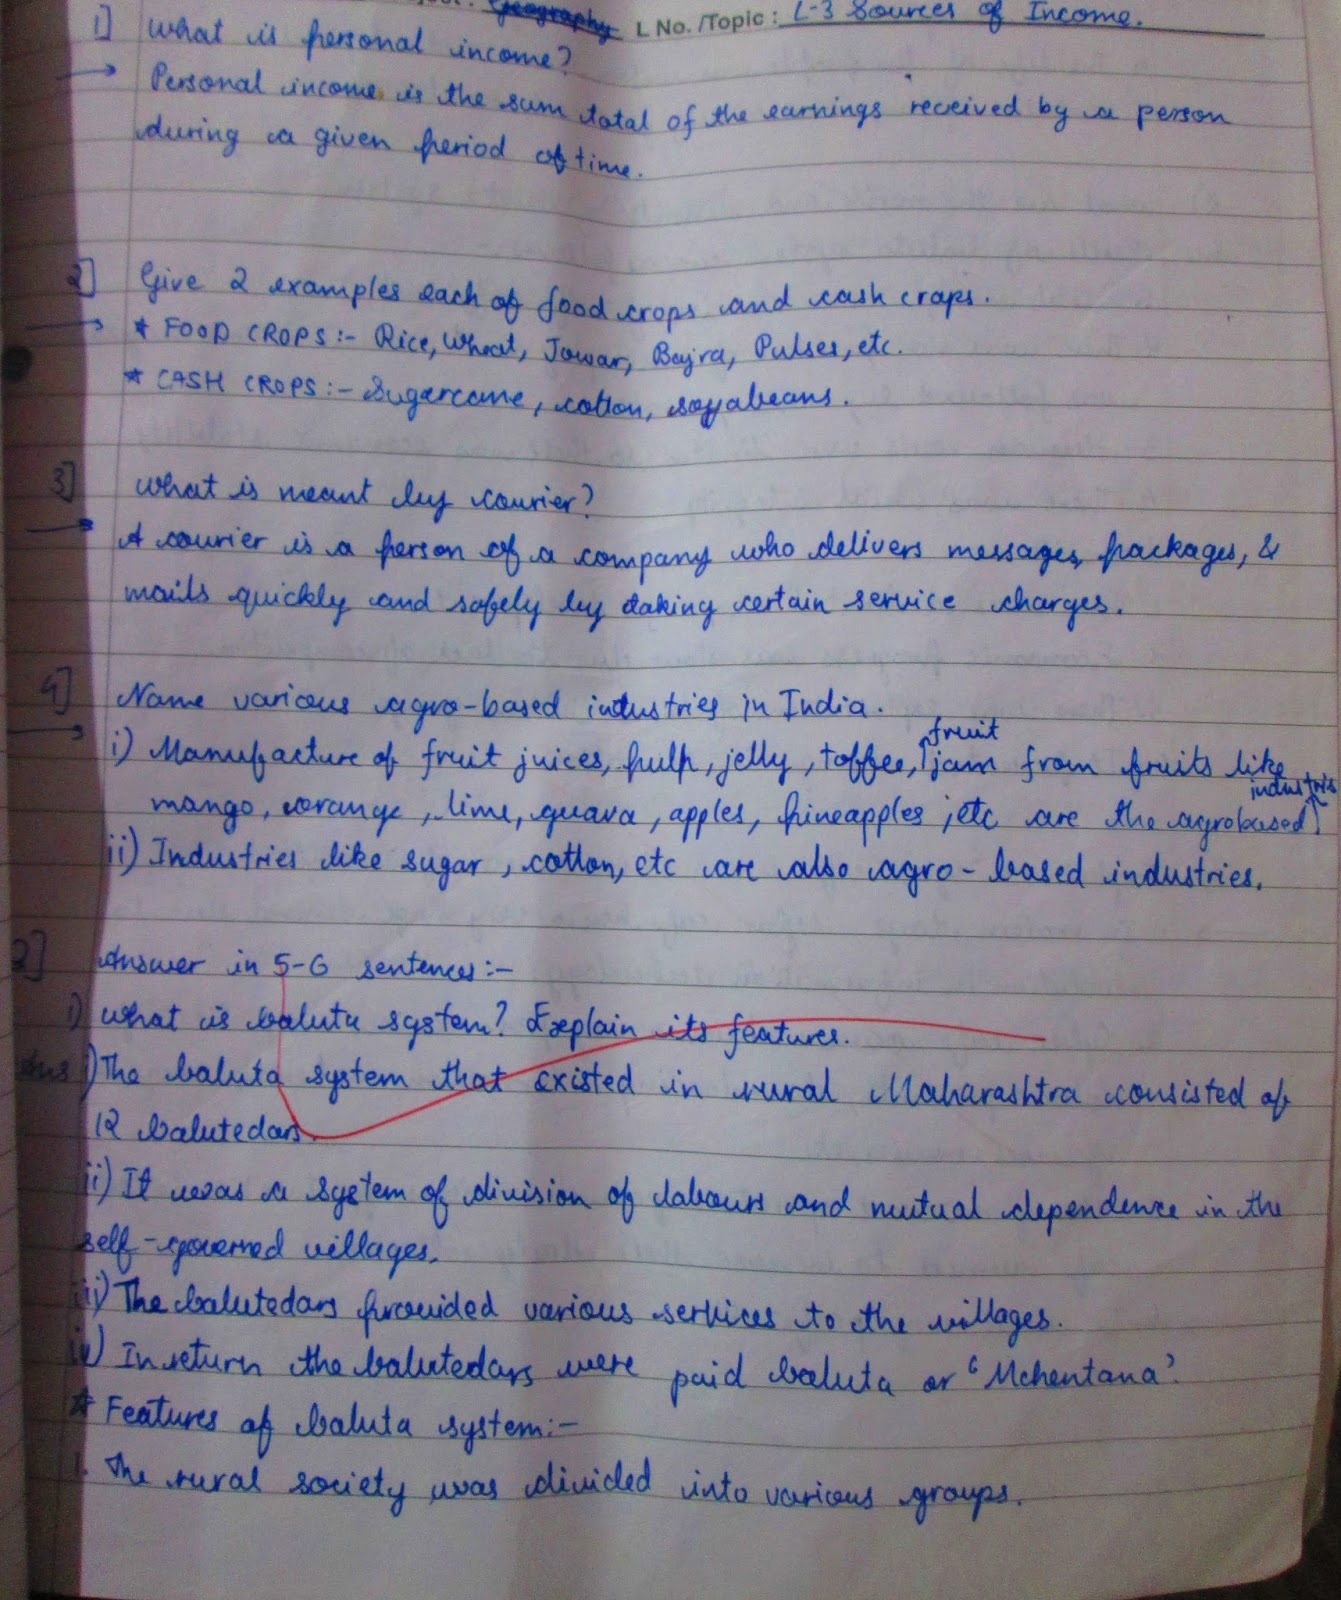 Geography L No./Topic: L-3 Sources of Income.
1] What is personal income?
→ Personal income is the sum total of the earnings received by a person
during a given period of time.
2] Give 2 examples each of food crops and cash craps.
→ * FOOD CROPS :- Rice, Wheat, Jowar, Bajra, Pulses, etc.
* CASH CROPS :- Sugarcane, cotton, soyabeans.
3] What is meant by courier?
→ A courier is a person of a company who delivers messages, packages, &
mails quickly and safely by taking certain service charges.
4] Name various agro-based industries in India.
→ i) Manufacture of fruit juices, pulp, jelly, toffee, fruit jam from fruits like
mango, orange, lime, guava, apples, pineapples, etc are the agrobased industris
ii) Industries like sugar, cotton, etc are also agro-based industries.
2] Answer in 5-6 sentences:-
i) What is baluta system? Explain its features.
Ans i) The baluta system that existed in rural Maharashtra consisted of
12 balutedars.
ii) It was a system of division of labours and mutual dependence in the
self-governed villages.
iii) The balutedars provided various services to the villages.
iv) In return the balutedars were paid baluta or 'Mehentana'.
* Features of baluta system:-
1. The rural society was divided into various groups.